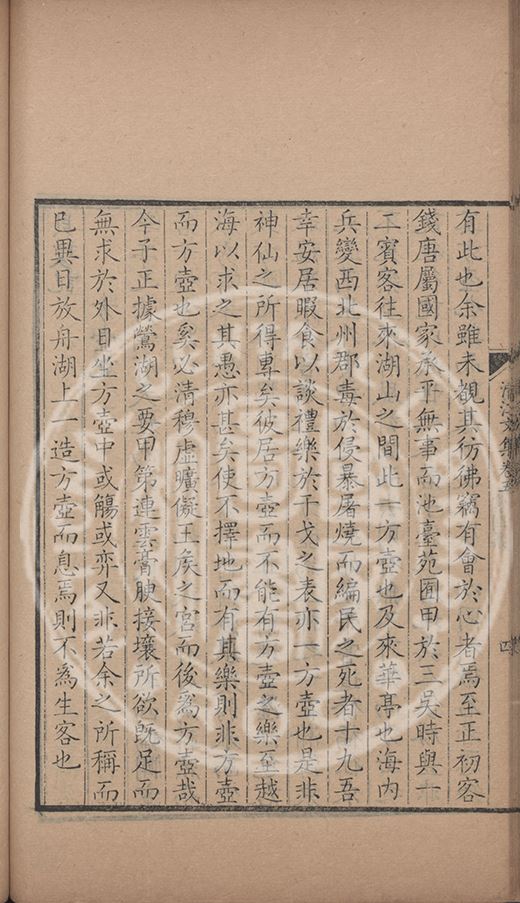 有此也余雖未覩其彷彿竊有會於心者焉至正初客
錢唐屬國家承平無事而池臺苑囿甲於三吳時與一
二賓客往來湖山之間此一方壺也及來華亭也海內
兵變西北州郡毒於侵暴屠燒而編民之死者十九吾
幸安居暇食以談禮樂於干戈之表亦一方壺也是非
神仙之所得專矣彼居方壺而不能有方壺之樂至越
海以求之其愚亦甚矣使不擇地而有其樂則非方壺
而方壺也奚必清穆虛曠儗王矦之宮而後爲方壺哉
今子正據鶯湖之要甲第連雲膏腴接壤所欲旣足而
無求於外日坐方壺中或觴或弈又非若余之所稱而
已異日放舟湖上一造方壺而息焉則不爲生客也
清江文集卷五
四